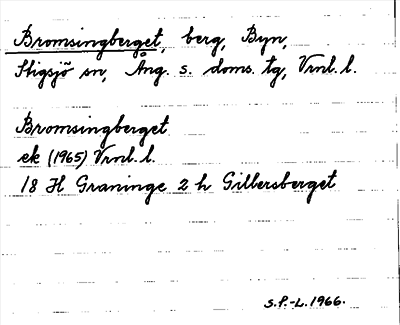 Bromsingberget, berg, Byn,
Stigsjö sn, Ång. s. doms. tg, Vrnl. l.
Bromsingberget
ek (1965) Vrnl. l.
18 H Graninge 2 h Gilbersberget
S.P.-L. 1966.